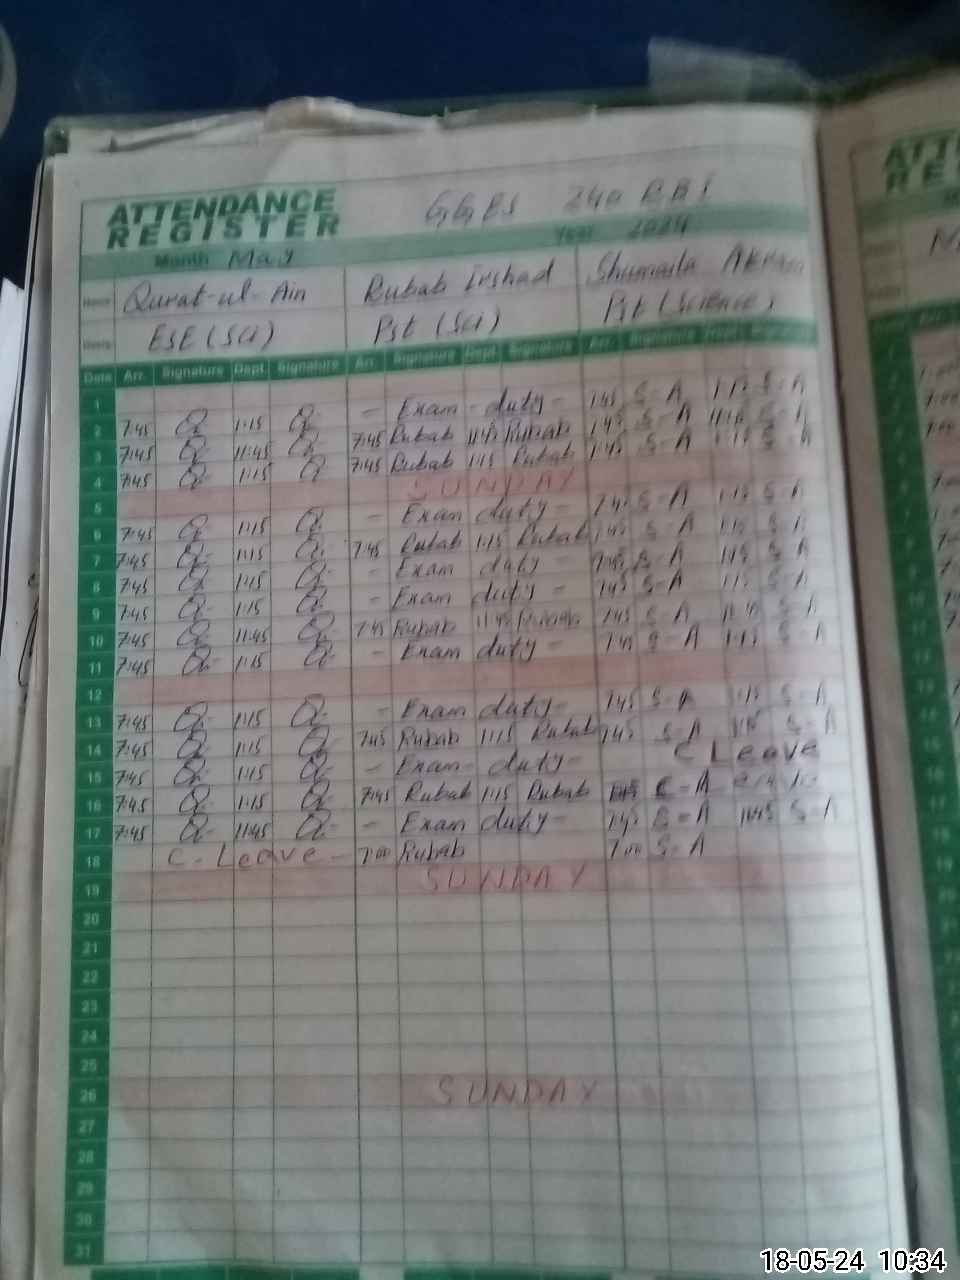 ATTENDANCE
REGISTER
GGES 240 RB I
Month May Year 2024
Name Qurat-ul-Ain Rubab Irshad Shumaila Akram
ESE (Sci) Pst (Sci) Pst (Science)
Date Arr. Signature Dept. Signature Arr. Signature Dept. Signature Arr. Signature Dept. Signature
1
2 7:45 Q 1:15 Q - Exam - duty - 7:45 S-A 1:15 S-A
3 7:45 Q 11:45 Q 7:45 Rubab 11:45 Rubab 7:45 S-A S-A
4 7:45 Q 1:15 Q 7:45 Rubab 1:15 Rubab 7:45 S-A 1:15 S-A
5 SUNDAY
6 7:45 Q 1:15 Q - Exam duty - 7:45 S-A 1:15 S-A
7 7:45 Q 1:15 Q 7:45 Rubab 1:15 Rubab 7:45 S-A 1:15 S-A
8 7:45 Q 1:15 Q - Exam duty - 7:45 S-A 1:15 S-A
9 7:45 Q 1:15 Q - Exam duty - 7:45 S-A 1:15 S-A
10 7:45 Q 11:45 Q 7:45 Rubab 11:45 Rubab 7:45 S-A S-A
11 7:45 Q 1:15 Q - Exam duty - 7:45 S-A 1:15 S-A
12
13 7:45 Q 1:15 Q - Exam duty - 7:45 S-A 1:15 S-A
14 7:45 Q 1:15 Q 7:45 Rubab 1:15 Rubab 7:45 S-A 1:15 S-A
15 7:45 Q 1:15 Q - Exam - duty - C Leave
16 7:45 Q 1:15 Q 7:45 Rubab 1:15 Rubab
17 7:45 Q 11:45 Q - Exam duty - 7:45 S-A 11:45 S-A
18 C-Leave - 7:00 Rubab 7:00 S-A
19 SUNDAY
20
21
22
23
24
25
26 SUNDAY
27
28
29
30
31
18-05-24 10:34